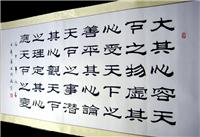 大其心容天
下之物虛其
心受天下之
善平其心論
天下之事潛
其心觀天下
之理定其心
應天下之變